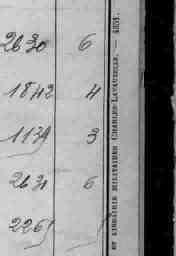 2630 6
1842 4
1139 3
2631 6
226
ET LIBRAIRIE MILITAIRES CHARLES-LAVAUZELLE. —